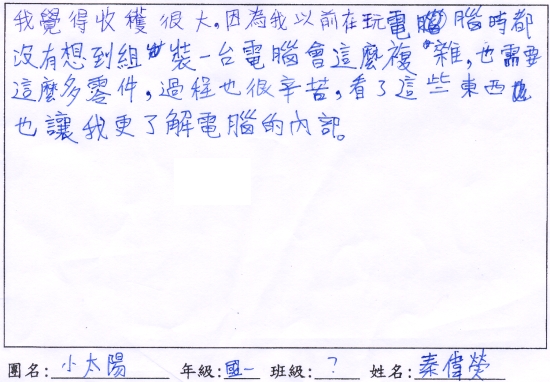 我覺得收穫很大。因為我以前在玩電腦腦時都
沒有想到組裝一台電腦會這麼複雜,也需要
這麼多零件,過程也很辛苦,看了這些東西
也讓我更了解電腦的內部。
團名:小太陽 年級:國一 班級:? 姓名:秦偉榮